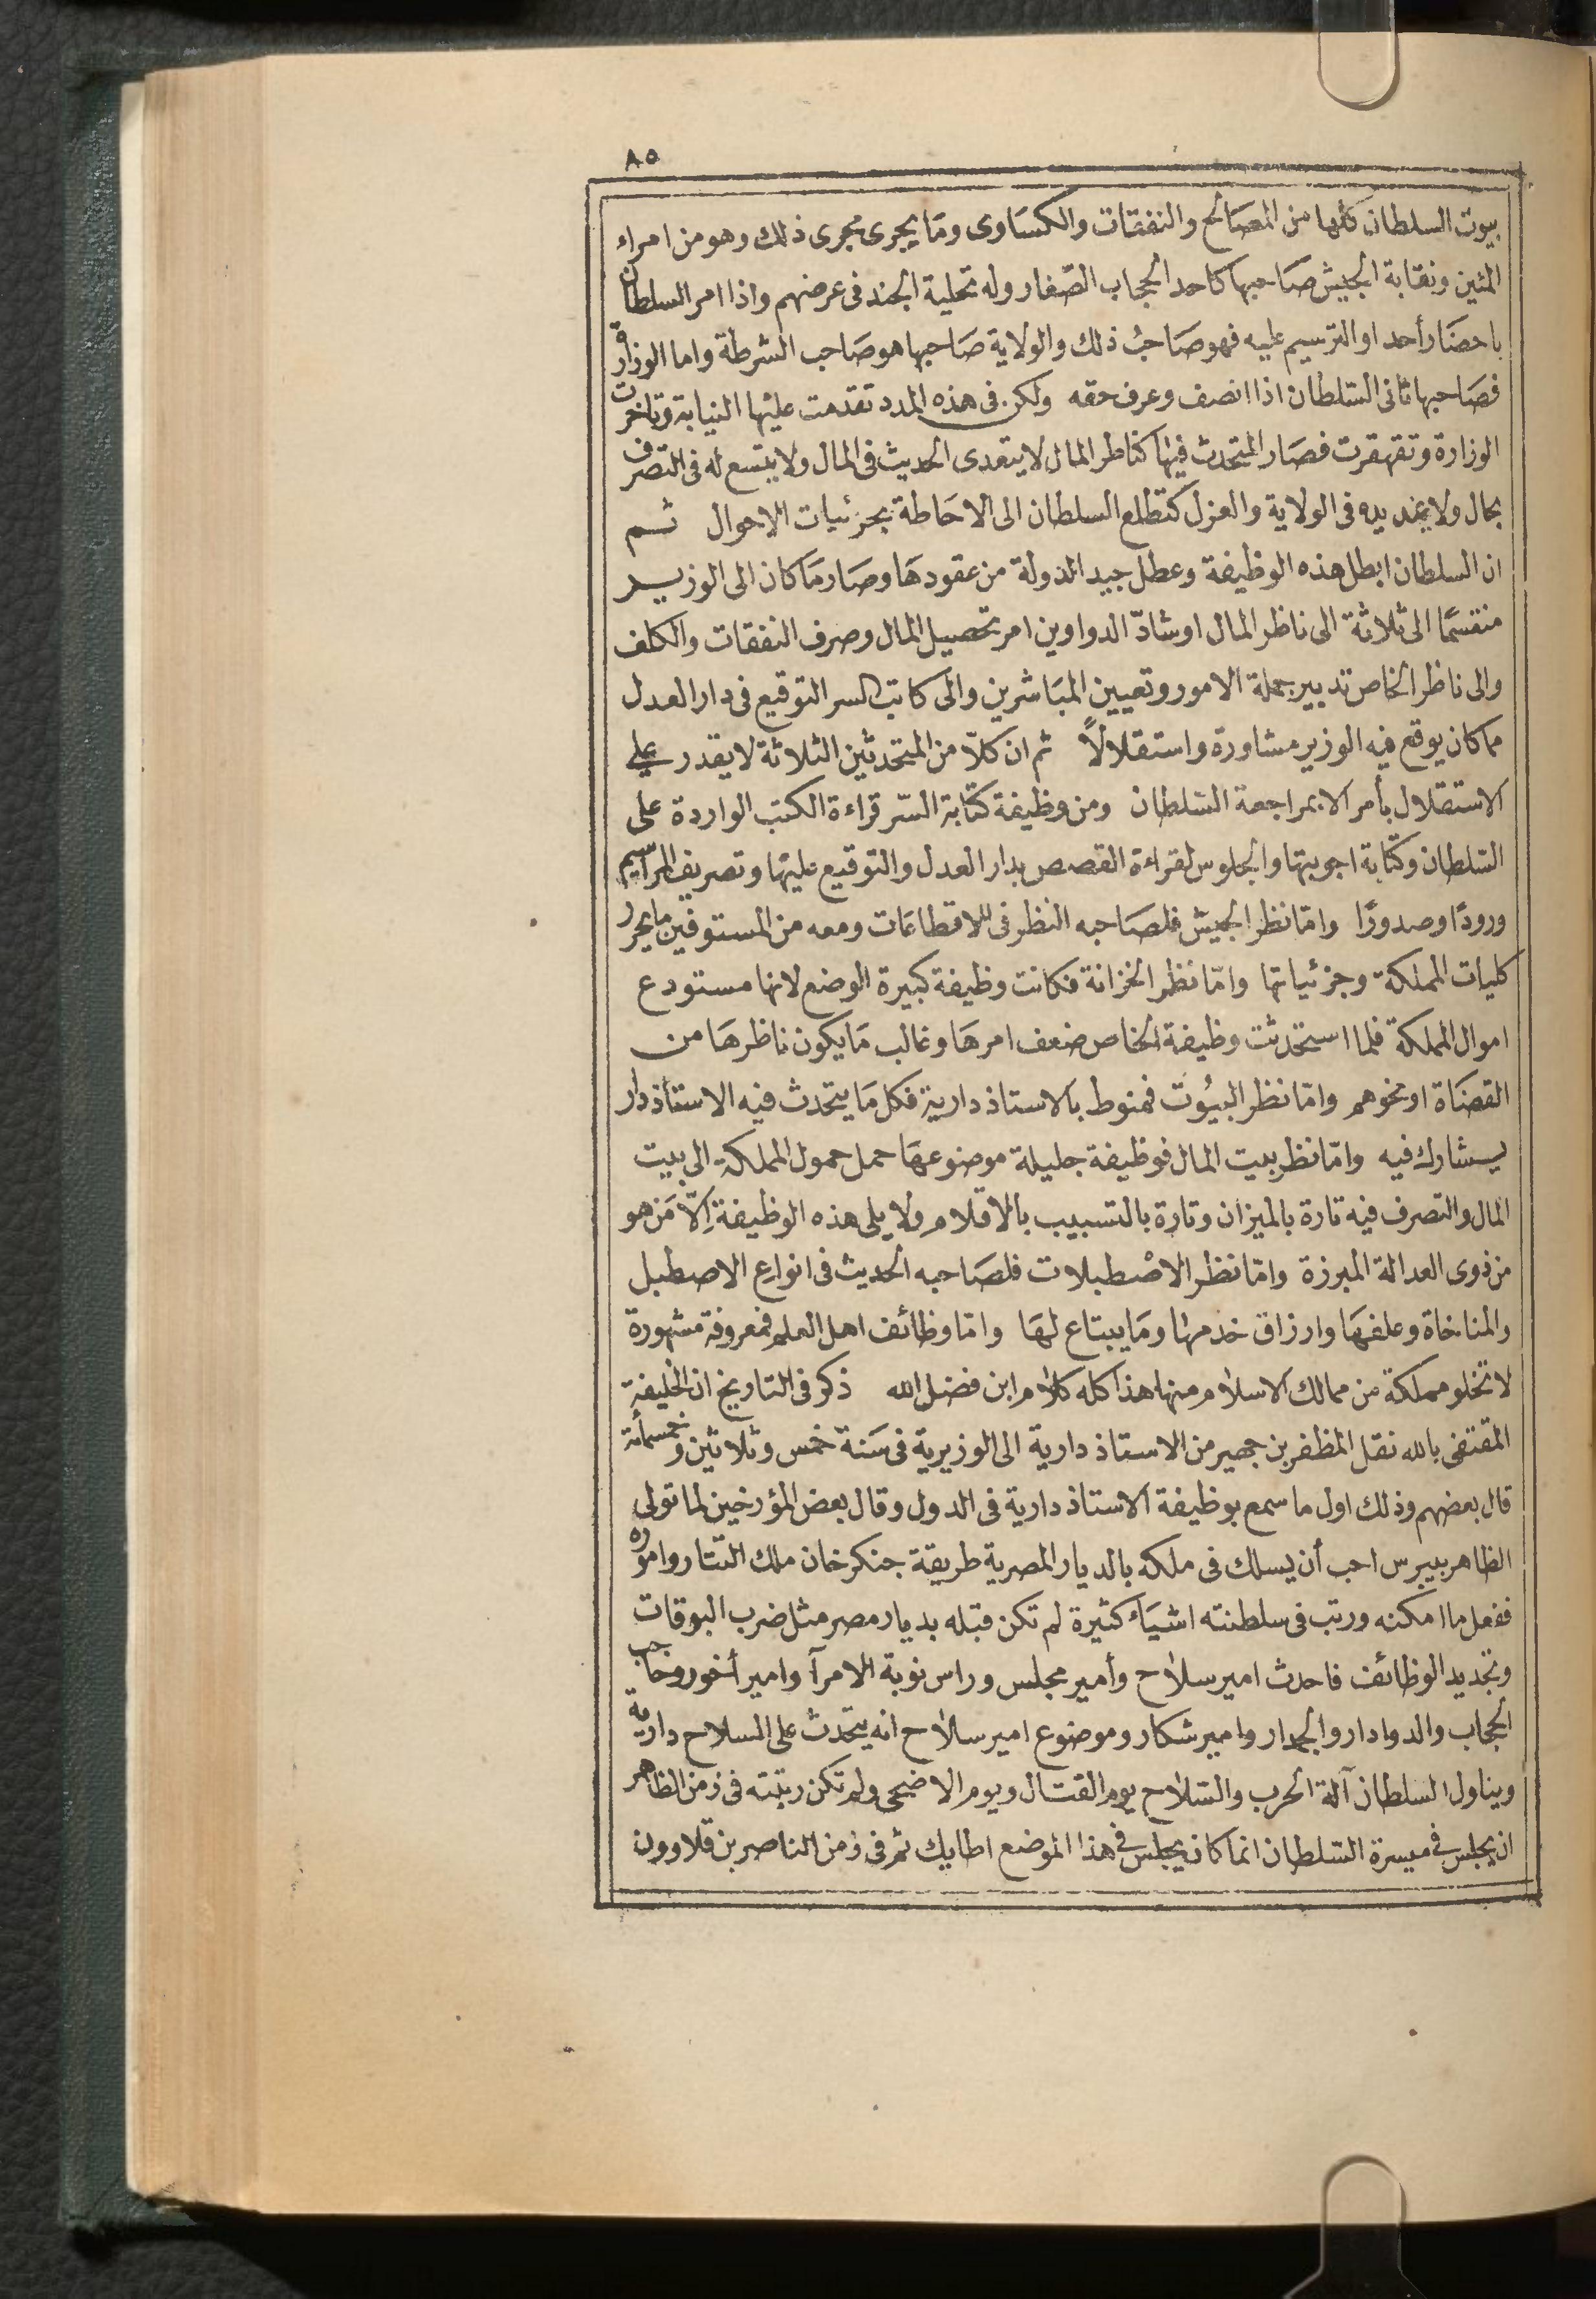 ٨٥
بيوت السلطان كلها من المصَالح والنفقات والكسَاوى ومَا يجرى مجرى ذلك وهو من امراء
المئين ونقابة الجيش صَاحبها كاحد الحجاب الصّغار وله تحلية الجند فى عرضهم واذا امر السلطان
باحضَار أحد او الترسيم عليه فهو صَاحبُ ذلك والولاية صَاحبها هو صَاحب الشرطة واما الوزارة
فصَاحبها ثانى السّلطان اذا انصف وعرف حقه ولكن فى هذه المدد تقدمت عليها النيابة وتاخرت
الوزارة وتقهقرت فصَار المتحدث فيها كناظر المال لا يتعدى الحديث فى المال ولا يتسع له فى التصرف
بحال ولا يمد يده فى الولاية والعزل كتطلع السلطان الى الاحَاطة بجزئيات الاحوال ثم
ان السلطان ابطل هذه الوظيفة وعطل جيد الدولة من عقودهَا وصَار مَا كان الى الوزير
منقسمًا الى ثلاثة الى ناظر المال او شادّ الدواوين امر تحصيل المال وصرف النفقات والكلف
والى ناظر الخاص تدبير جملة الامور وتعيين المبَاشرين والى كاتب السر التوقيع فى دار العدل
مما كان يوقع فيه الوزير مشاورة واستقلالاً ثم ان كلّا من المتحدثين الثلاثة لا يقدر على
الاستقلال بأمر الا بمراجعة السّلطان ومن وظيفة كتابة السّر قراءة الكتب الواردة على
السّلطان وكتابة اجوبتها والجلوس لقراءة القصص بدار العدل والتوقيع عليها وتصريف المرَاسيم
ورودًا وصدورًا وامّا نظر الجيش فلصَاحبه النظر فى للاقطاعَات ومعه من المستوفين ما يحرر
كليات المملكة وجزئياتها وامّا نظر الخزانة فكانت وظيفة كبيرة الوضع لانها مستودع
اموال المملكة فلما استحدثت وظيفة الخاص ضعف امرهَا وغالب مَا يكون ناظرهَا من
القضَاة او نحوهم وامّا نظر البيُوت فمنوط بالاستاذ دارية فكل مَا يتحدث فيه الاستاذ دار
يشارك فيه وامّا نظر بيت المال فوظيفة جليلة موضوعهَا حمل حمول المملكة الى بيت
المال والتصرف فيه تارة بالميزان وتارة بالتسبيب بالاقلام ولا يلى هذه الوظيفة اِلّا مَن هو
من ذوى العدالة المبرزة وامّا نظر الاصْطبلات فلصَاحبه الحديث فى انواع الاصطبل
والمناخاة وعلفهَا وارزاق خدمها ومَا يبتاع لهَا وامّا وظائف اهل العلم فمعروفة مشهورة
لا تخلو مملكة من ممالك الاسلام منها هذا كله كلام ابن فضل الله ذكر فى التاويخ ان الخليفة
المقتفى بالله نقل المظفر بن جهير من الاستاذ دارية الى الوزيرية فى سَنة خمس وثلاثين وخمسمأئة
قال بعضهم وذلك اول ما سمع بوظيفة الاستاذ دارية فى الدول وقال بعض المؤرخين لما تولى
الظاهر بيبرس احب أن يسلك فى ملكه بالديار المصرية طريقة جنكر خان ملك التتار واموره
ففعل ما امكنه ورتب فى سلطنته اشيَاء كثيرة لم تكن قبله بديار مصر مثل ضرب البوقات
وتجديد الوظائف فاحدث امير سلاح وأمير مجلس وراس نوبة الامرآ وامير أخور وحاجب
الحجاب والدوادار والجمدار وامير شكار وموضوع امير سلاح انه يتحدث على السلاح دارية
ويناول السلطان آلة الحرب والسّلاح يوم القتال ويوم الاضحى ولم تكن رتبته فى زمن الظاهر
ان يجلس فى ميسرة السّلطان انما كان يجلس فى هذا الموضع اطابك ثم فى زمن الناصر بن قلاوون